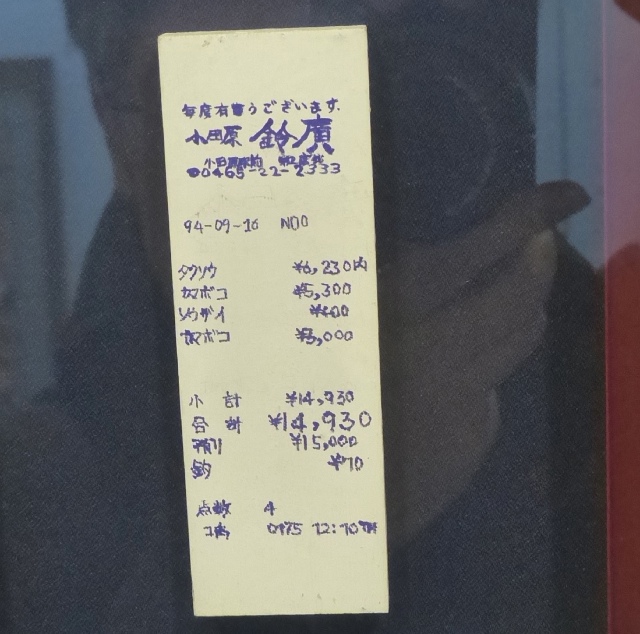 毎度有難うございます.
小田原 鈴廣
0465-22-2333
94-09-16 N00
タクソウ ¥6,230内
カマボコ ¥5,300
ソウザイ ¥400
カマボコ ¥3,000
小 計 ¥14,930
合 計 ¥14,930
預リ ¥15,000
釣 ¥70
点数 4
0975 12:10TM